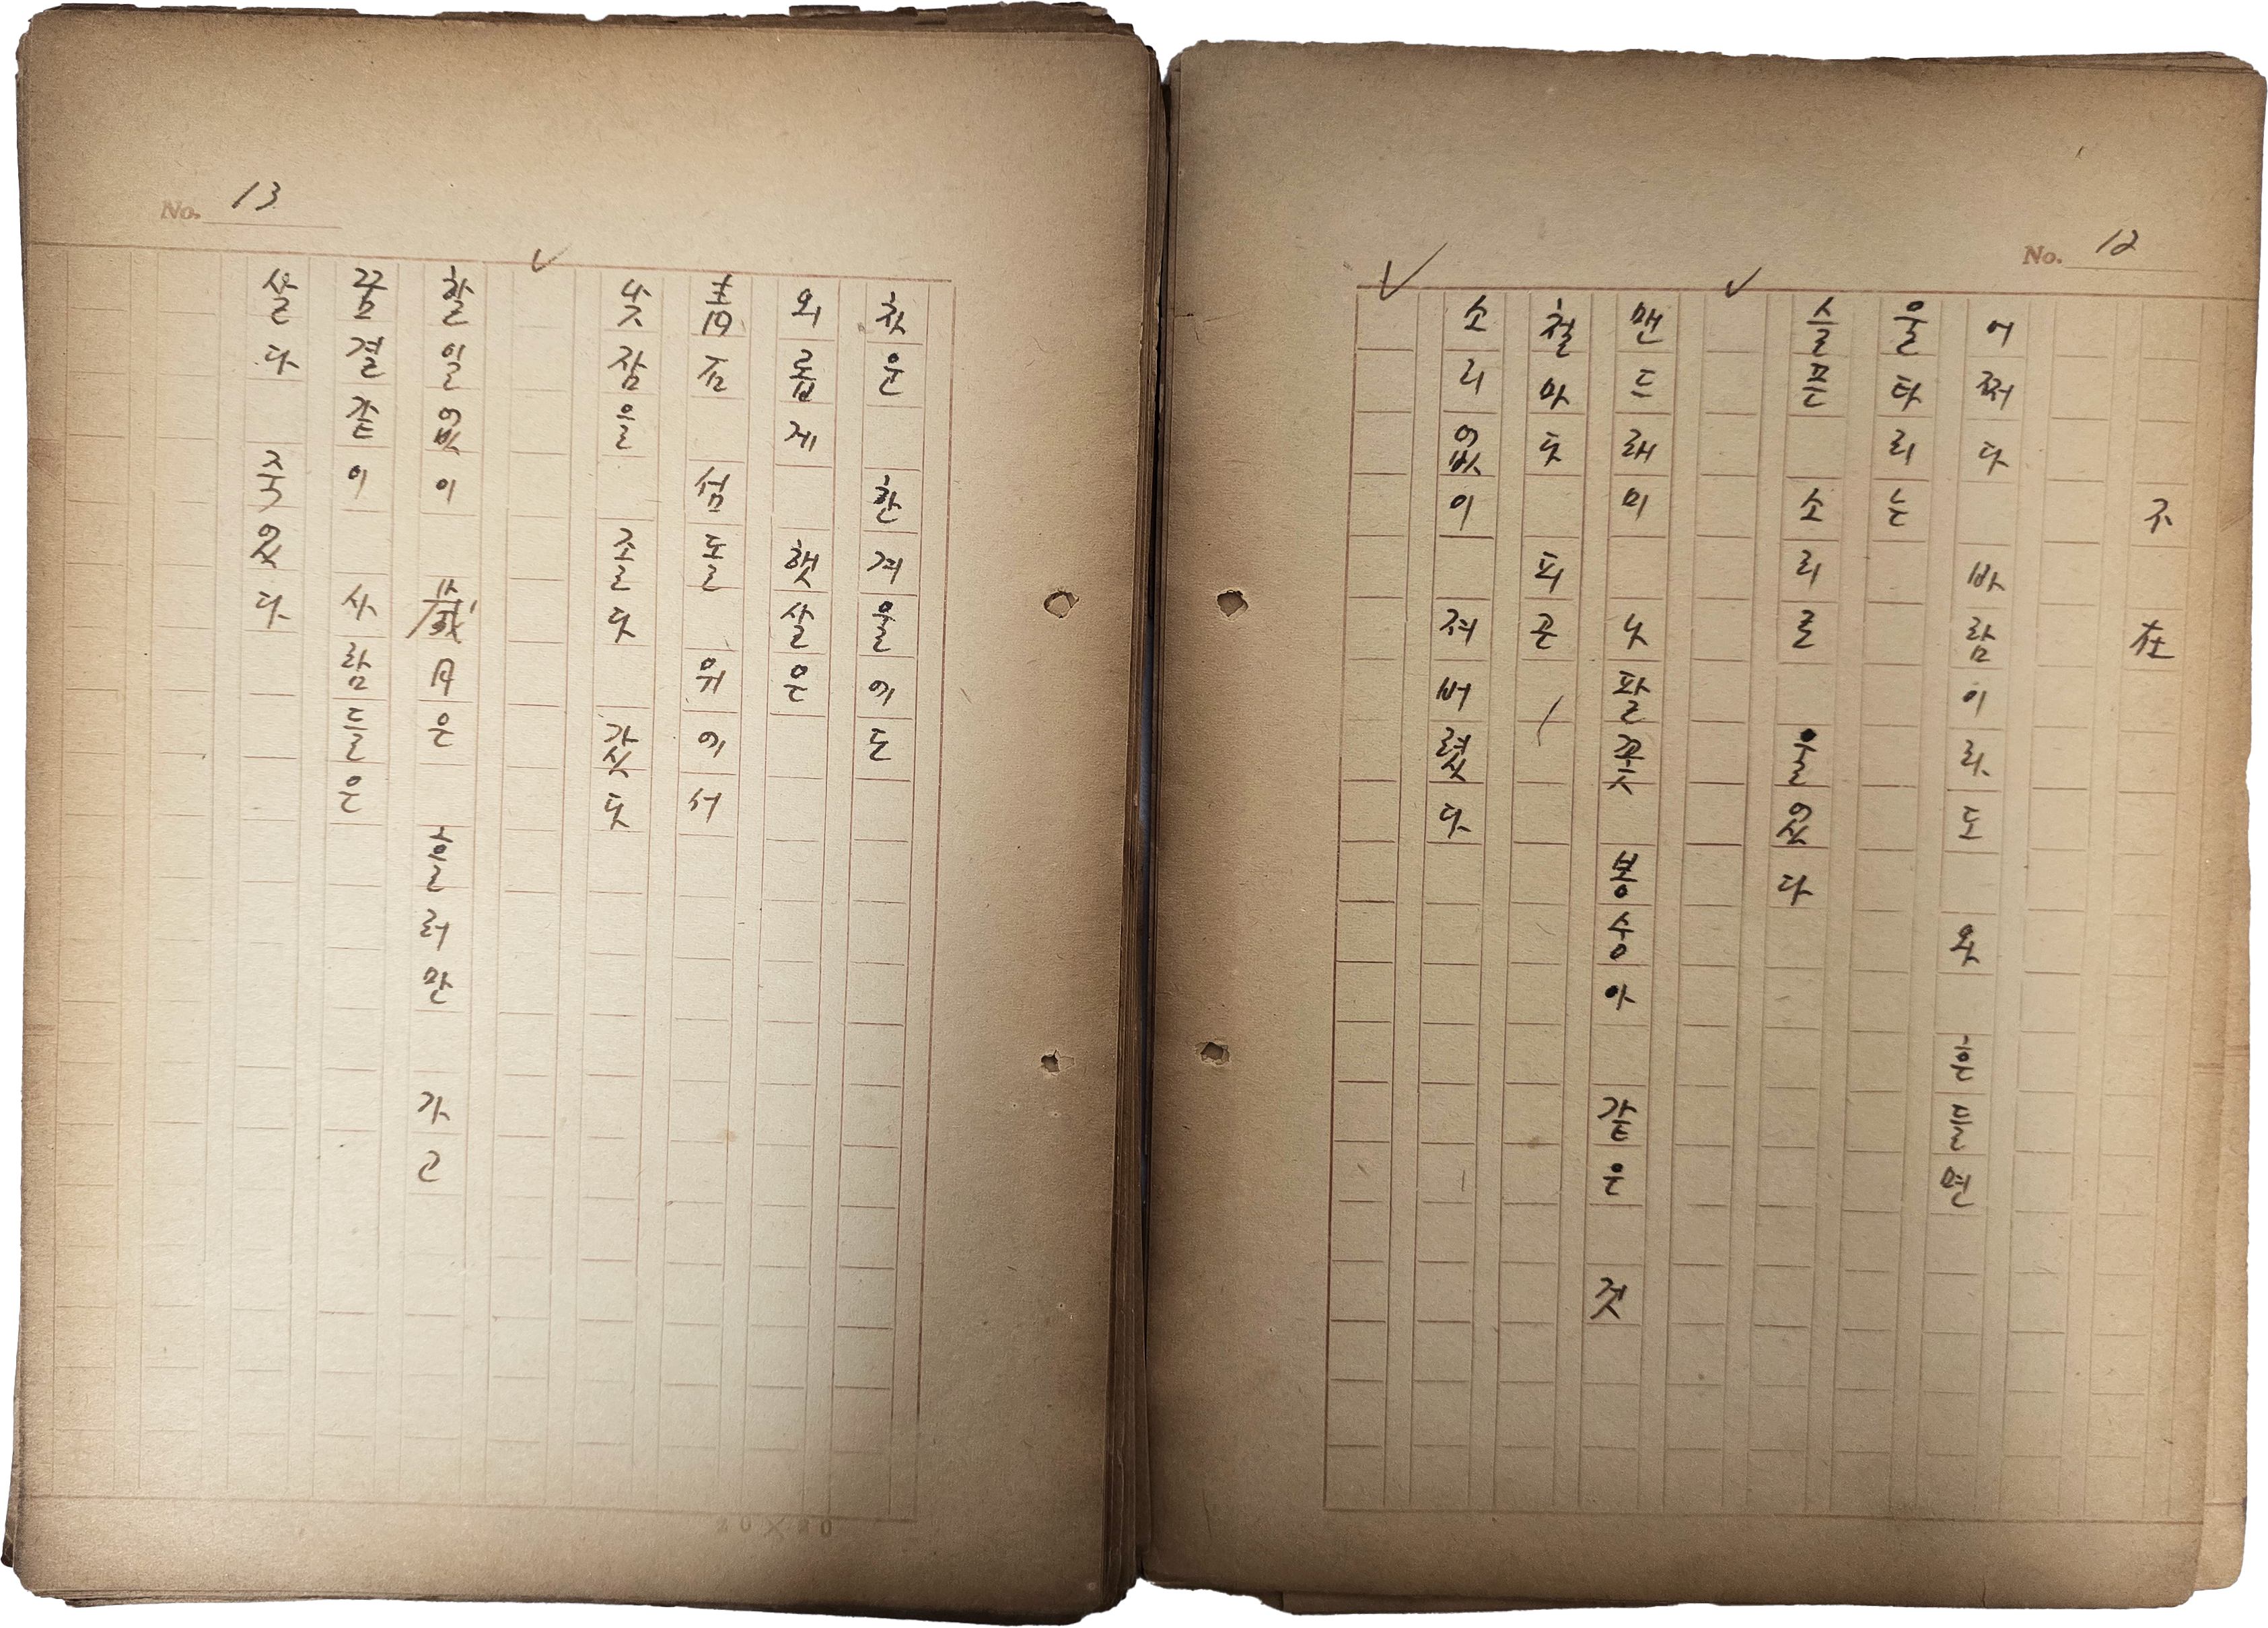 No. 12
不在
어쩌다 바람이라도 와 흔들면
울타리는
슬픈 소리로 울었다
맨드래미 나팔꽃 봉숭아 같은 것
철마다 피곤
소리없이 져버렸다
No. 13
차운 한겨울에도
외롭게 햇살은
靑石 섬돌 위에서
낮잠을 졸다 갔다
할일없이 歲月은 흘러만 가고
꿈결같이 사람들은
살다 죽었다
20×20